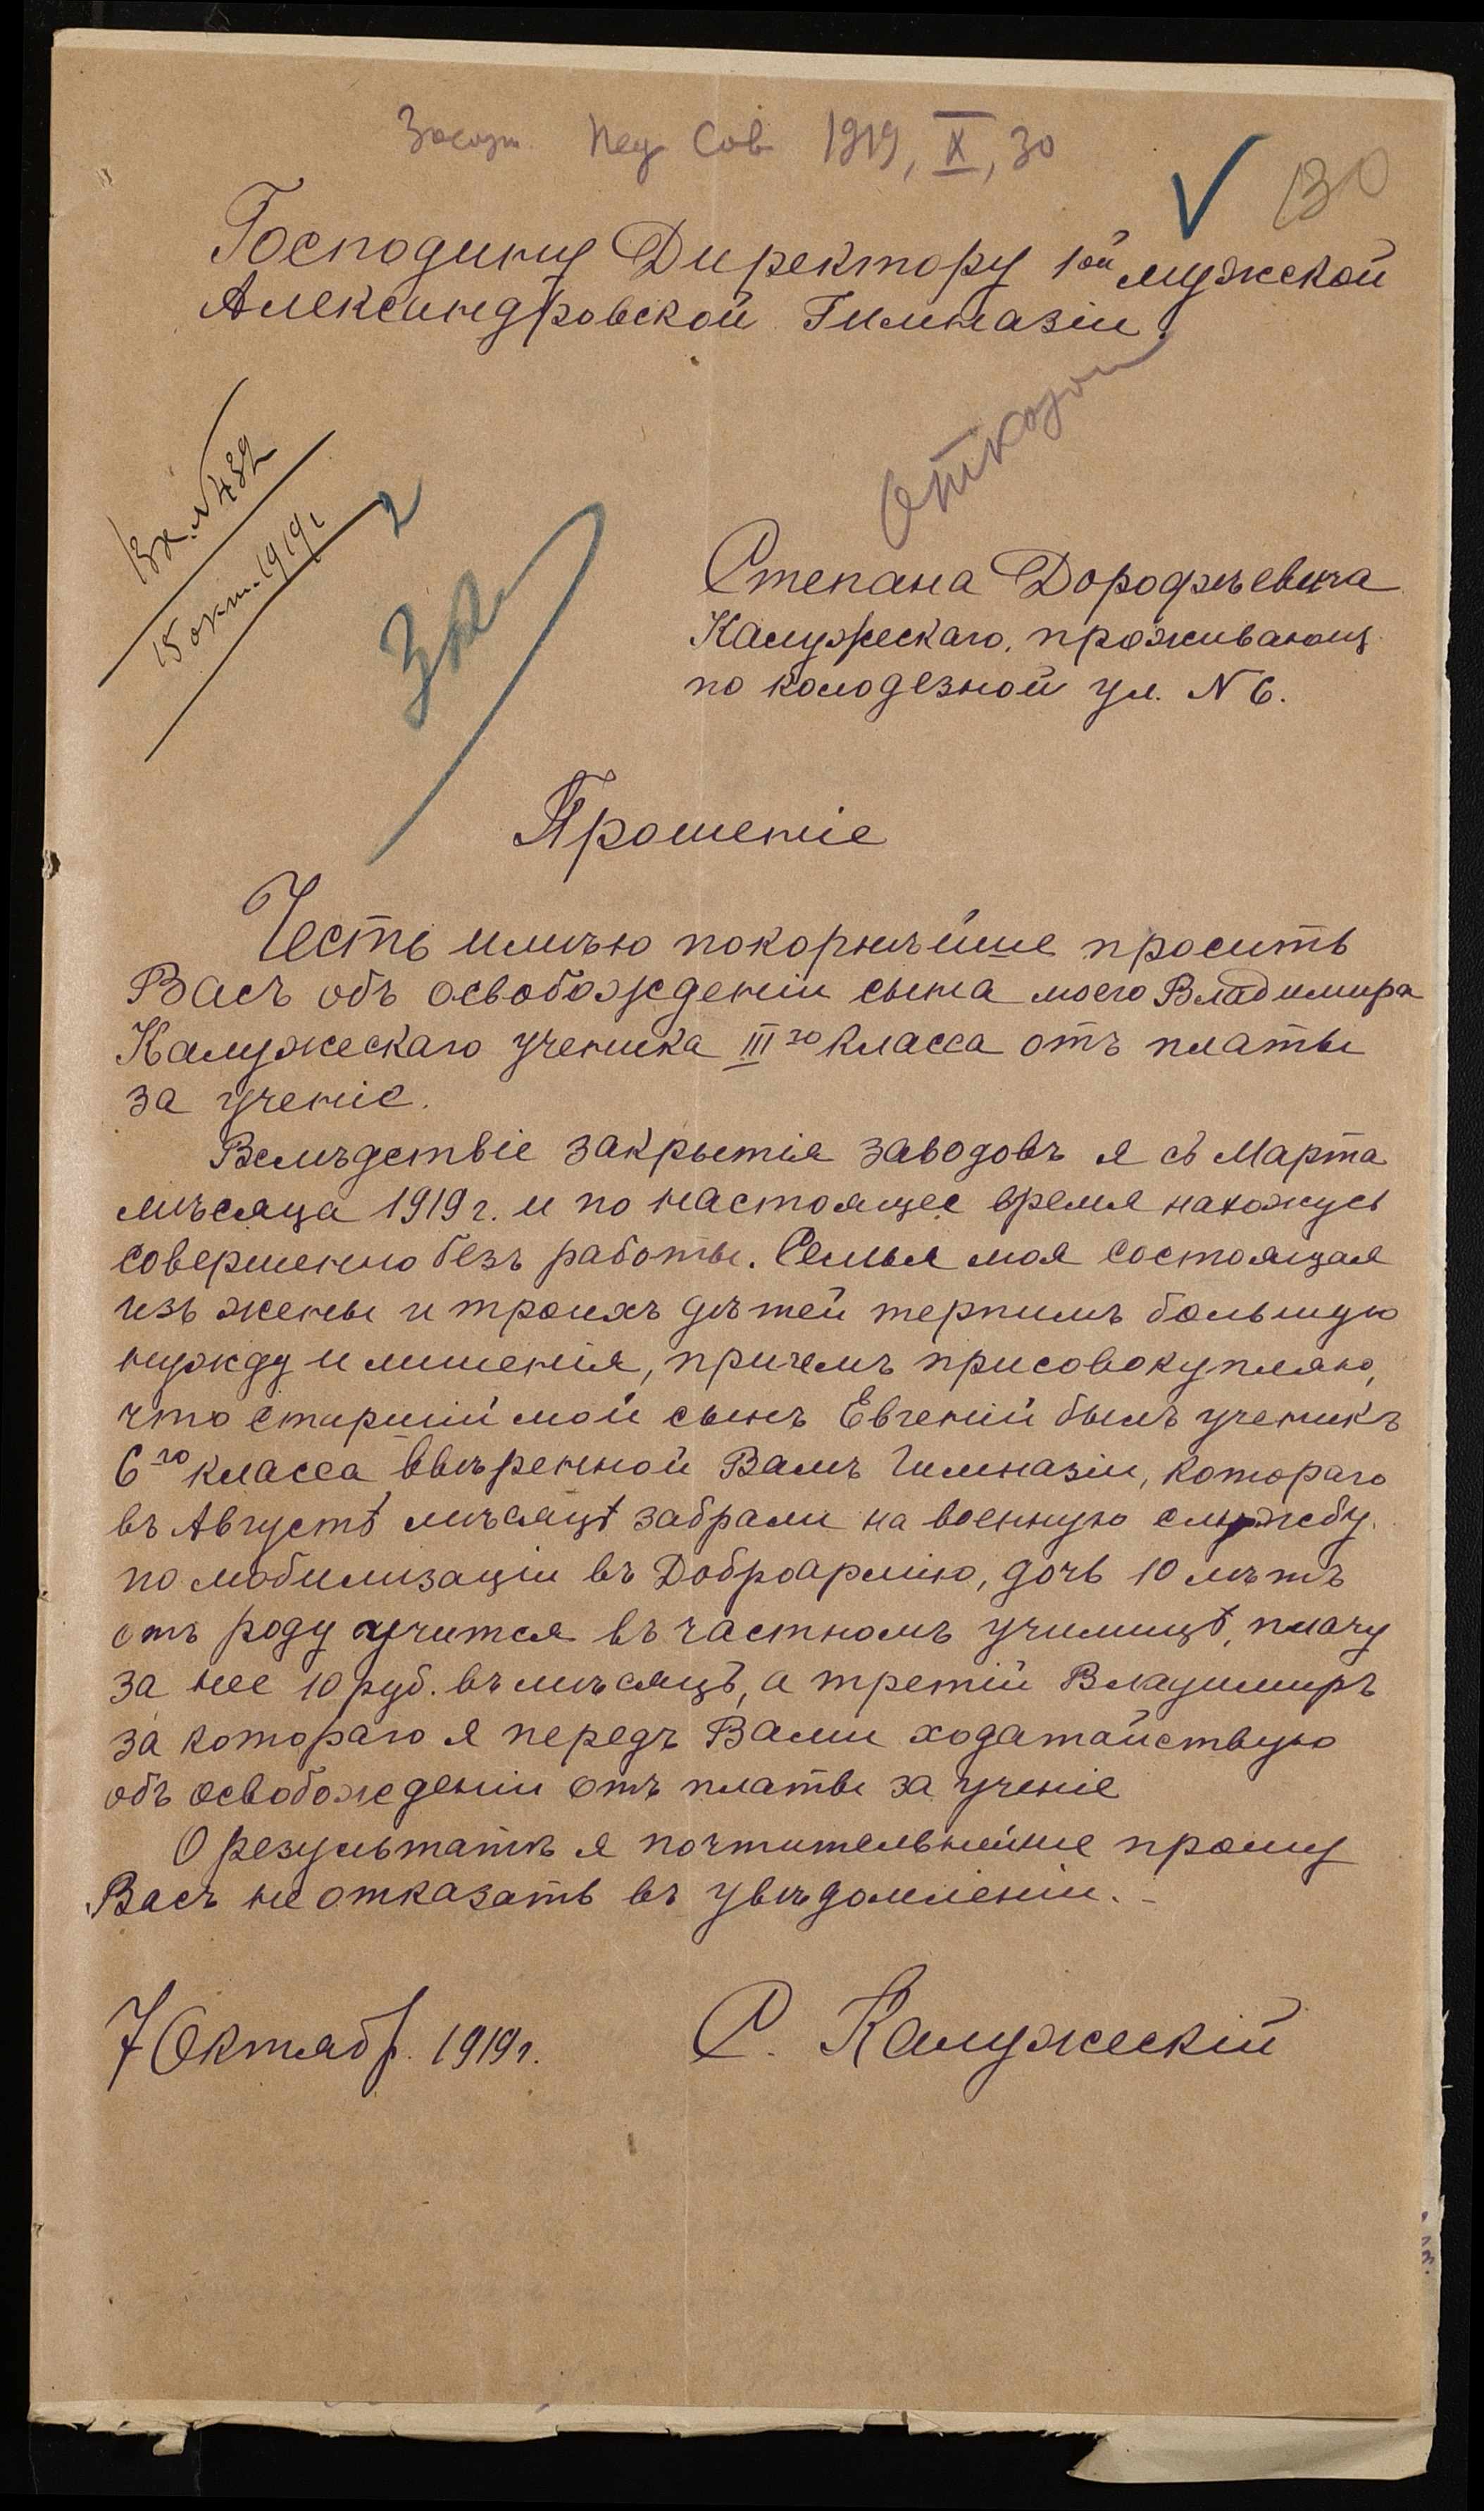 Пед Сов 1919, X, 30
130
Господину Директору 1ой мужской
Александровской Гимназіи.
Отказать
Вх. N 482
15 окт. 1919 г
2
Степана Дорофѣевича
Калужескаго, проживающ.
по колодезной ул. N 6.
Прошеніе
Честь имѣю покорнѣйше просить
Васъ объ освобожденіи сына моего Владимира
Калужескаго ученика III го класса отъ платы
за ученіе.
Вслѣдствіе закрытія заводовъ я съ Марта
мѣсяца 1919 г. и по настоящее время нахожусь
совершенно безъ работы. Семья моя состоящая
изъ жены и троихъ дѣтей терпимъ большую
нужду и лишенія, причемъ присовокупляю,
что старшій мой сынъ Евгеній былъ ученикъ
6го класса ввѣренной Вамъ Гимназіи, котораго
въ Августѣ мѣсяцѣ забрали на военную службу.
по мобилизаціи въ Доброармію, дочь 10 лѣтъ
отъ роду учится въ частномъ училищѣ, плачу
за нее 10 руб. въ мѣсяцъ, а третій Владимиръ
за котораго я передъ Вами ходатайствую
объ освобожденіи отъ платы за ученіе
О результатѣ я почтительнейше прошу
Васъ не отказать въ увѣдомленіи. -
7 Октябр. 1919 г.
С. Калужескій